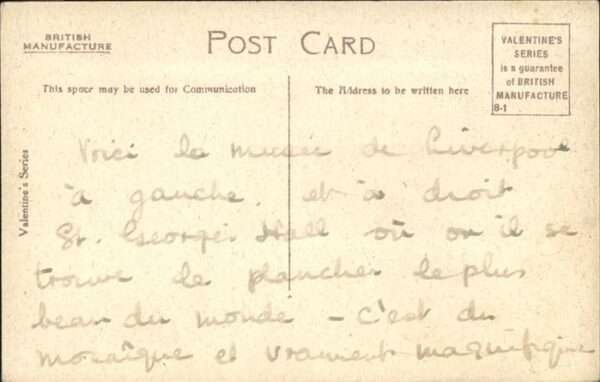 BRITISH
MANUFACTURE
POST CARD
VALENTINE'S
SERIES
is a guarantee
of BRITISH
MANUFACTURE
8-1
This space may be used for Communication
The Address to be written here
Valentine's Series
Voici le musée de Liverpool
à gauche, et à droit
St. George's Hall où on il se
trouve le plancher le plus
beau du monde - C'est du
mosaïque et vraiment magnifique